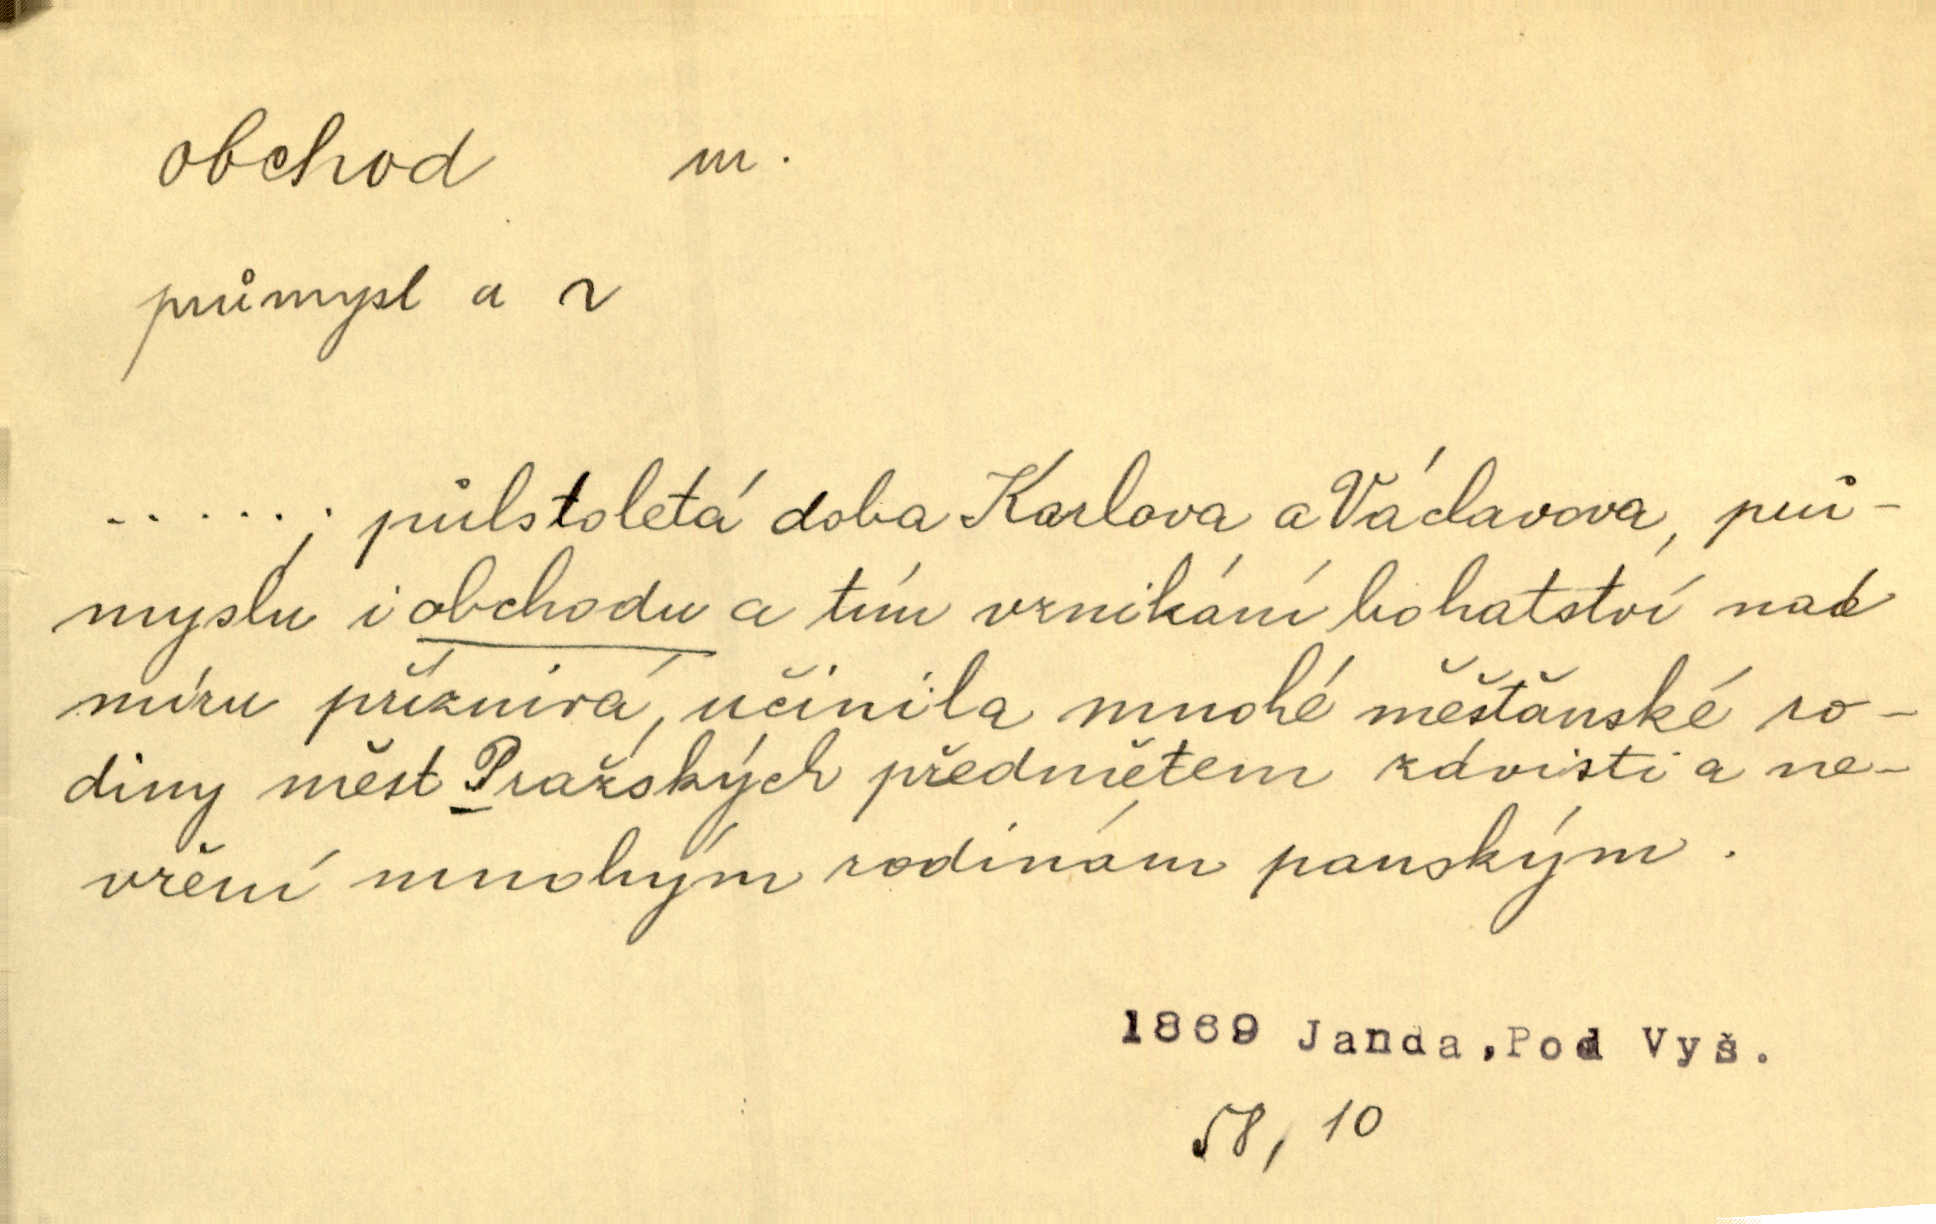 obchod m.
průmysl a ~
......; půlstoletá doba Karlova a Václavova, prů-
myslu i obchodu a tím vznikání bohatství nad
míru příznivá, učinila mnohé měšťanské ro-
diny měst Pražských předmětem závisti a ne-
vření mnohým rodinám panským.
1869 Janda, Pod Vyš.
58, 10